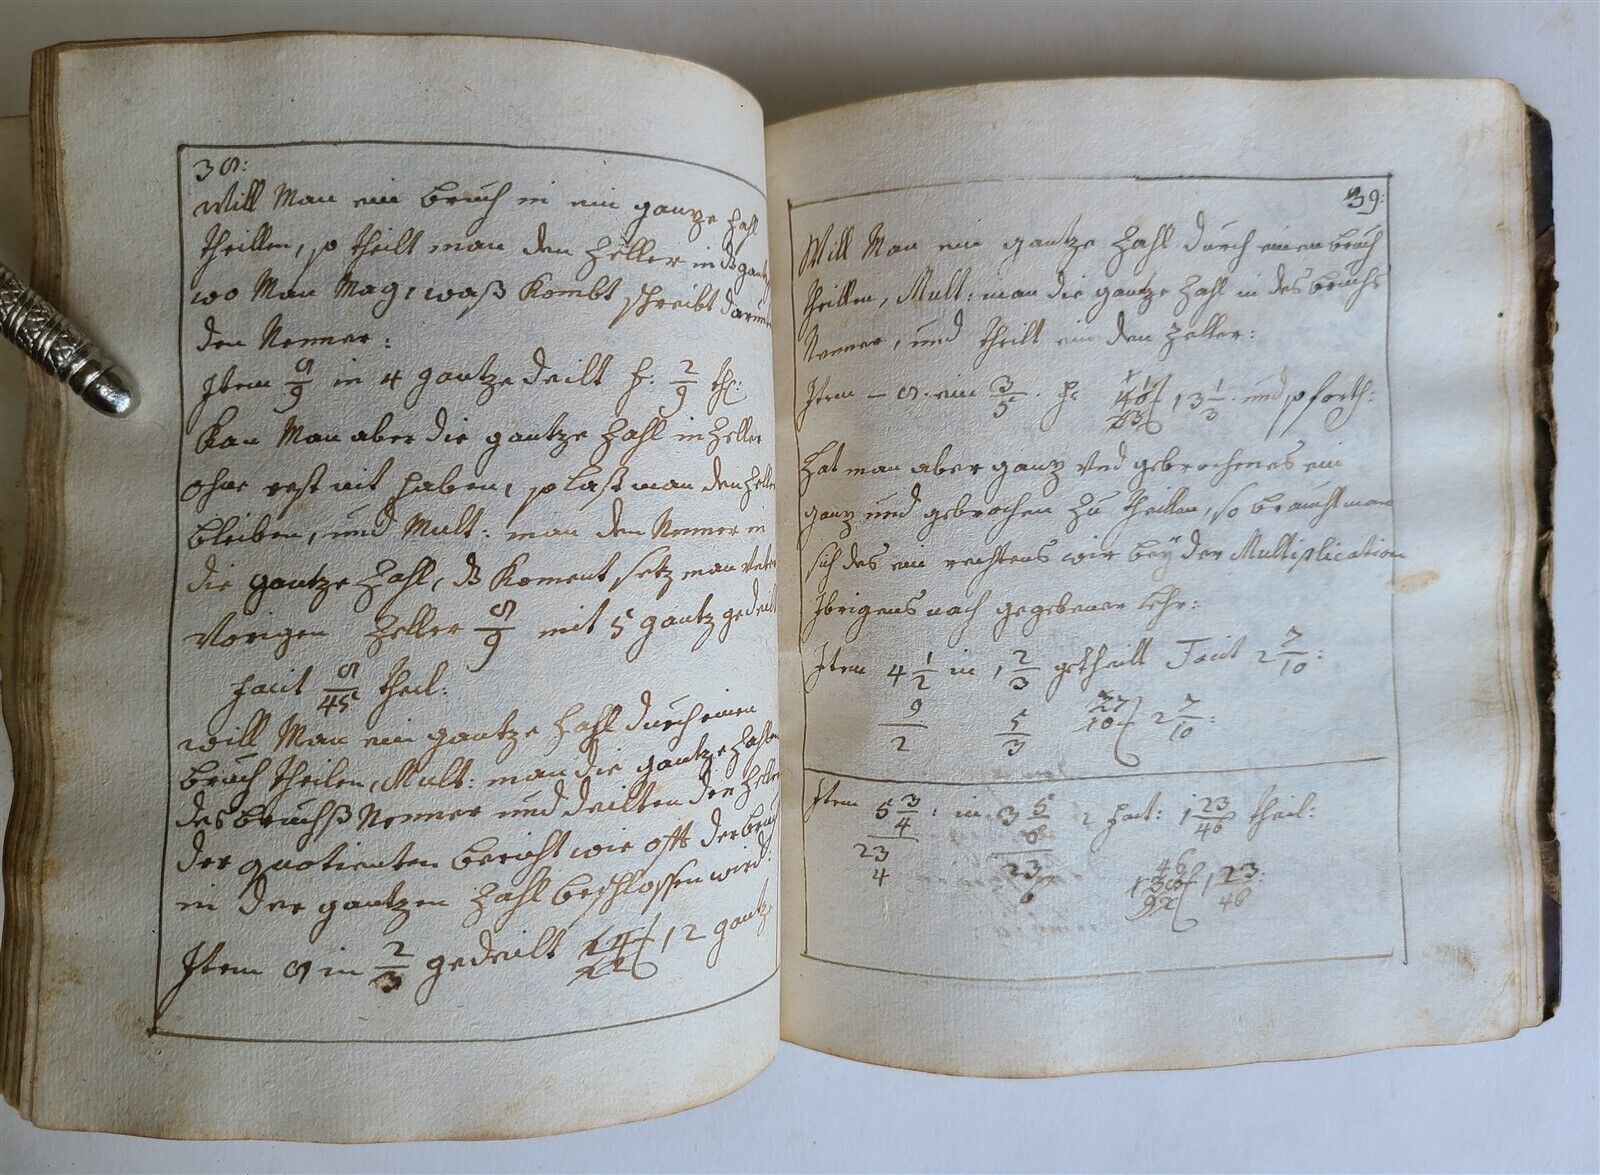 38:
Will Man ein bruch in ein gantze Zahl
theillen, so theilt man den Zeller in d gantz
wo Man Mag, waß Kombt schreibt darunter
den Nenner:
Item 8/9 in 4 gantze deilt f: 2/9 thl:
Kan Man aber die gantze Zahl in Zeller
ohne rest nit haben, so last man den Zeller
bleiben, und Mult: man den Nenner in
die gantze Zahl, ds Koment setz man unter
Vorigen Zeller 8/9 mit 5 gantz gedeilt
facit 8/45 theil:
Will Man ein gantze Zahl durch einen
bruch theilen, Mult: man die gantze Zahlen
des bruchß Nenner und deilt den Zeller
der quotienten bericht wie offt der bruch
in der gantzen Zahl beschlossen wird:
Item 8 in 2/3 gedeilt 24 22 ( 12 gantze
39:
Will Man ein gantze Zahl durch einen bruch
theillen, Mult: man die gantze Zahl in des bruchs
Nenner, und theilt ein den Zeller:
Item – 8 ein 3/5 f: 40 33 ( 13 1/3 und so forth:
Hat man aber gantz und gebrochenes ein
gantz und gebrochen zu theillen, so braucht man
sich des ein rechtens wir beÿ der Multiplication
Ibrigens nach gegebener Lehr:
Item 4 1/2 in 1 2/3 getheilt Facit 2 7/10:
9/2 5/3 27 10 ( 2 7/10:
Item 5 3/4 in 3 5/8 hat: 1 23/46 theil:
23 4 23 6 46 138 92 ( 1 23/46: